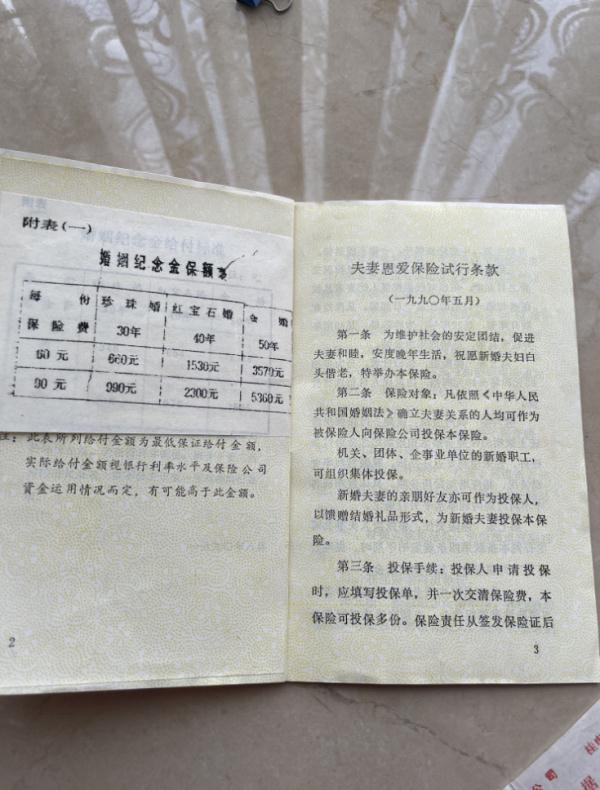 附表(一)
婚姻纪念金保额表
每 份 珍珠婚 红宝石婚 金 婚
保险费 30年 40年 50年
60元 660元 1530元 3570元
90元 990元 2300元 5360元
注: 此表所列给付金额为最低保证给付金额,
实际给付金额视银行利率水平及保险公司
资金运用情况而定,有可能高于此金额。
2
夫妻恩爱保险试行条款
(一九九〇年五月)
第一条 为维护社会的安定团结,促进
夫妻和睦,安度晚年生活,祝愿新婚夫妇白
头偕老,特举办本保险。
第二条 保险对象:凡依照《中华人民
共和国婚姻法》确立夫妻关系的人均可作为
被保险人向保险公司投保本保险。
机关、团体、企事业单位的新婚职工,
可组织集体投保。
新婚夫妻的亲朋好友亦可作为投保人,
以馈赠结婚礼品形式,为新婚夫妻投保本保
险。
第三条 投保手续:投保人申请投保
时,应填写投保单,并一次交清保险费,本
保险可投保多份。保险责任从签发保险证后
3
公司
据